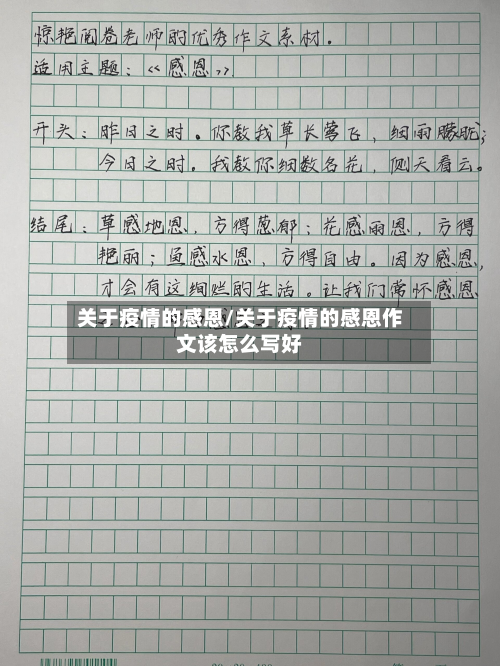 惊艳阅卷老师的优秀作文素材.
适用主题:《感恩》
开头:昨日之时。你教我草长莺飞,细雨朦胧;
今日之时。我教你细数名花,侧天看云。
结尾:草感地恩,方得葱郁;花感雨恩,方得
艳丽;鱼感水恩,方得自由。因为感恩,
才会有这绚烂的生活。让我们常怀感恩
关于疫情的感恩/关于疫情的感恩作
文该怎么写好